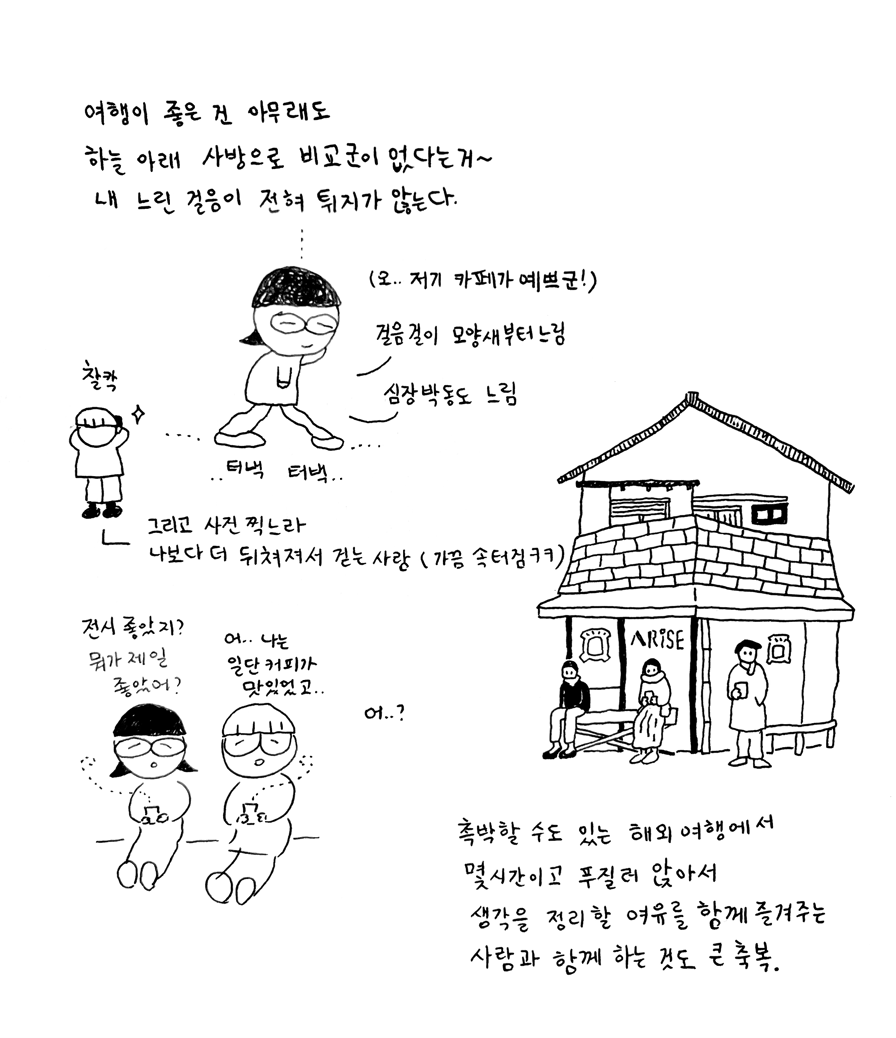 여행이 좋은 건 아무래도
하늘 아래 사방으로 비교군이 없다는거~
내 느린 걸음이 전혀 튀지가 않는다.
(오.. 저기 카페가 예쁘군!)
걸음걸이 모양새부터 느림
심장박동도 느림
찰칵
..터벅 터벅..
그리고 사진 찍느라
나보다 더 뒤쳐져서 걷는 사람 (가끔 속터짐ㅋㅋ)
전시 좋았지?
뭐가 제일
좋았어?
어.. 나는
일단 커피가
맛있었고..
어..?
ARiSE
촉박할 수도 있는 해외여행에서
몇시간이고 푸질러 앉아서
생각을 정리할 여유를 함께 즐겨주는
사람과 함께 하는 것도 큰 축복.